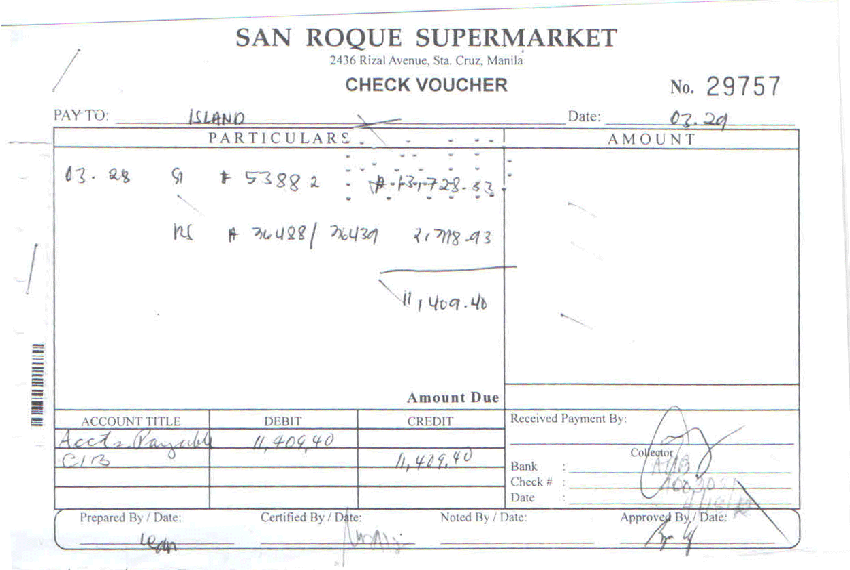 SAN ROQUE SUPERMARKET
2436 Rizal Avenue, Sta. Cruz, Manila
CHECK VOUCHER
No. 29757
PAY TO: ISLAND Date: 03.29
PARTICULARS AMOUNT
03.28 # 53882 13,728.33
RS # 36438/ 36439
11,409.40
Amount Due
ACCOUNT TITLE DEBIT CREDIT Received Payment By:
Accts. Payable 11,409.40
CIB 11,409.40
Collector
Bank : AUB
Check # :
Date :
Prepared By / Date: Certified By / Date: Noted By / Date: Approved By / Date: